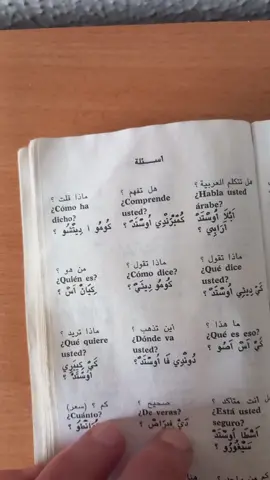 اسئلة
هل تتكلم العربية ؟
¿Habla usted
árabe?
أَبْلَا أُوسْتَدْ
أَرَابِي ؟
هل تفهم ؟
¿Comprende
usted?
كُمْبْرَنْدِي أُوسْتَدْ ؟
ماذا قلت ؟
¿Cómo ha
dicho?
كُومُو ا دِيتْشُو ؟
ماذا تقول ؟
¿Qué dice
usted?
كَيْ دِيثِي أُوسْتَدْ ؟
ماذا تقول ؟
¿Cómo dice?
كُومُو دِيثِيْ ؟
من هو ؟
¿Quién es?
كِيَانْ آسْ ؟
ما هذا ؟
¿Qué es eso?
كَيْ آسْ آسُو ؟
اين تذهب ؟
¿Dónde va
usted?
دُونْدِي فَا أُوسْتَدْ ؟
ماذا تريد ؟
¿Qué quiere
usted?
كَيْ كِيَرِي
أُوسْتَدْ ؟
انت متأكد ؟
¿Está usted
seguro?
أُوسْتَدْ
سِيغُورُو ؟
صحيح ؟
¿De veras?
كم ؟ (سعر)
¿Cuánto?